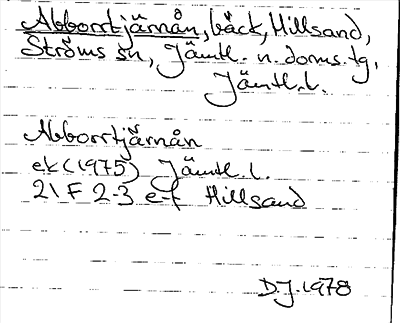 Abborrtjärnån, bäck, Hillsand,
Ströms sn, Jämtl. n. doms. tg,
Jämtl. l.
Abborrtjärnån
ek (1975) Jämtl. l.
21 F 2-3 e-f Hillsand
D.J. 1978